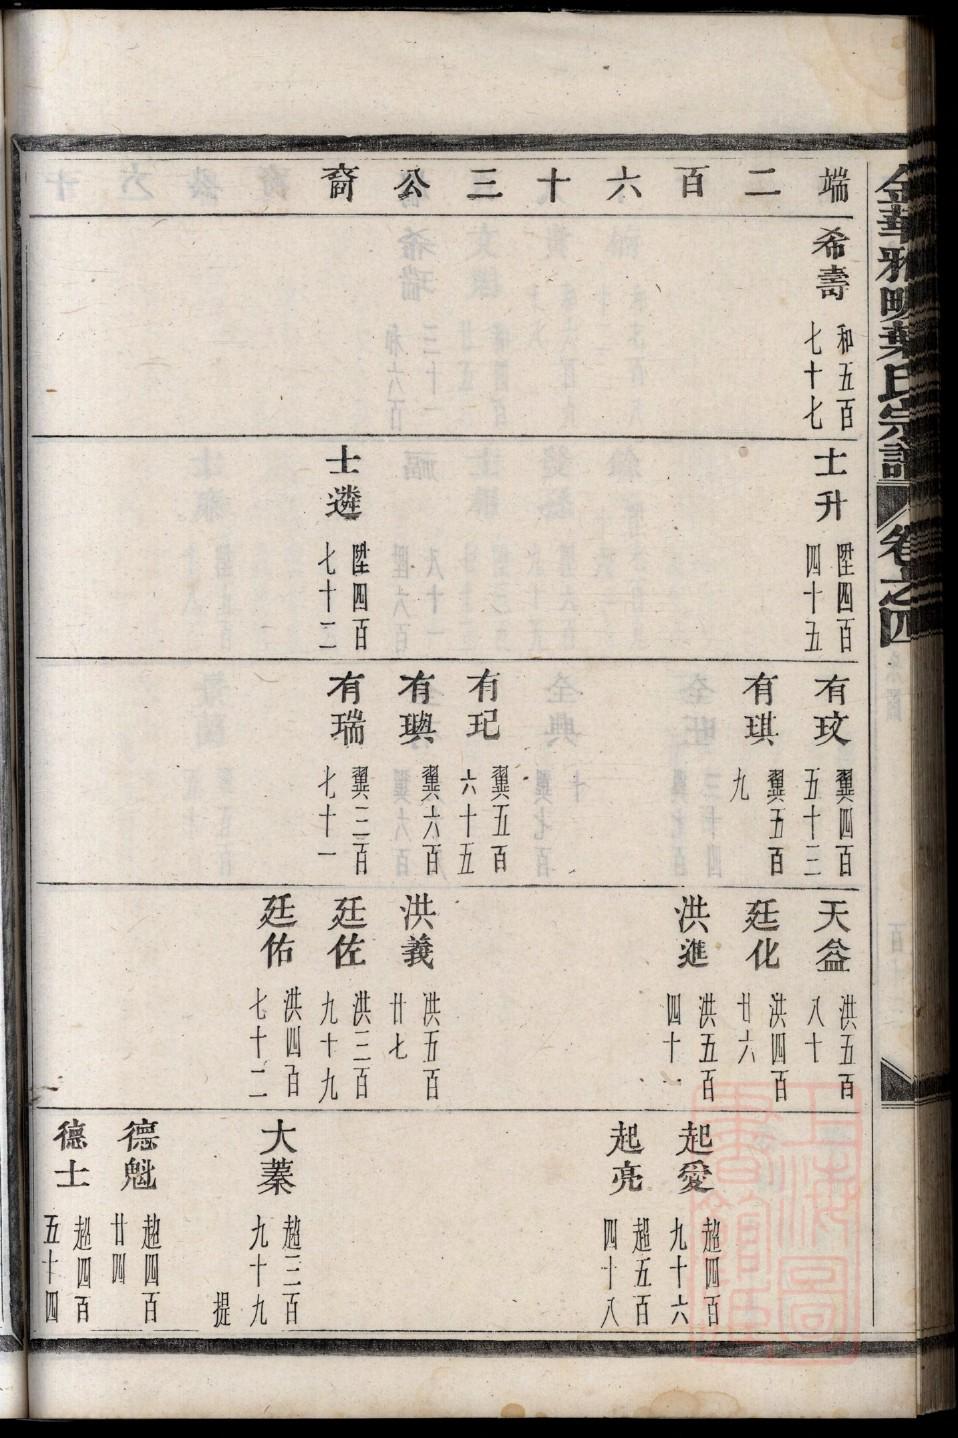 金華雅畈葉氏宗譜 卷之四
端二百六十三公裔
希壽 和五百七十七
士升 陞四百四十五
士遴 陞四百七十二
有玟 翼四百五十三
有琪 翼五百九
有玘 翼五百六十五
有璵 翼六百
有瑞 翼三百七十一
天益 洪五百八十
廷化 洪四百廿六
洪進 洪五百四十一
洪義 洪五百廿七
廷佐 洪三百九十九
廷佑 洪四百七十二
起愛 超四百九十六
起亮 超五百四十八
大蓁 超三百九十九
提
德魁 超四百廿四
德士 超四百五十四
上海圖書館藏